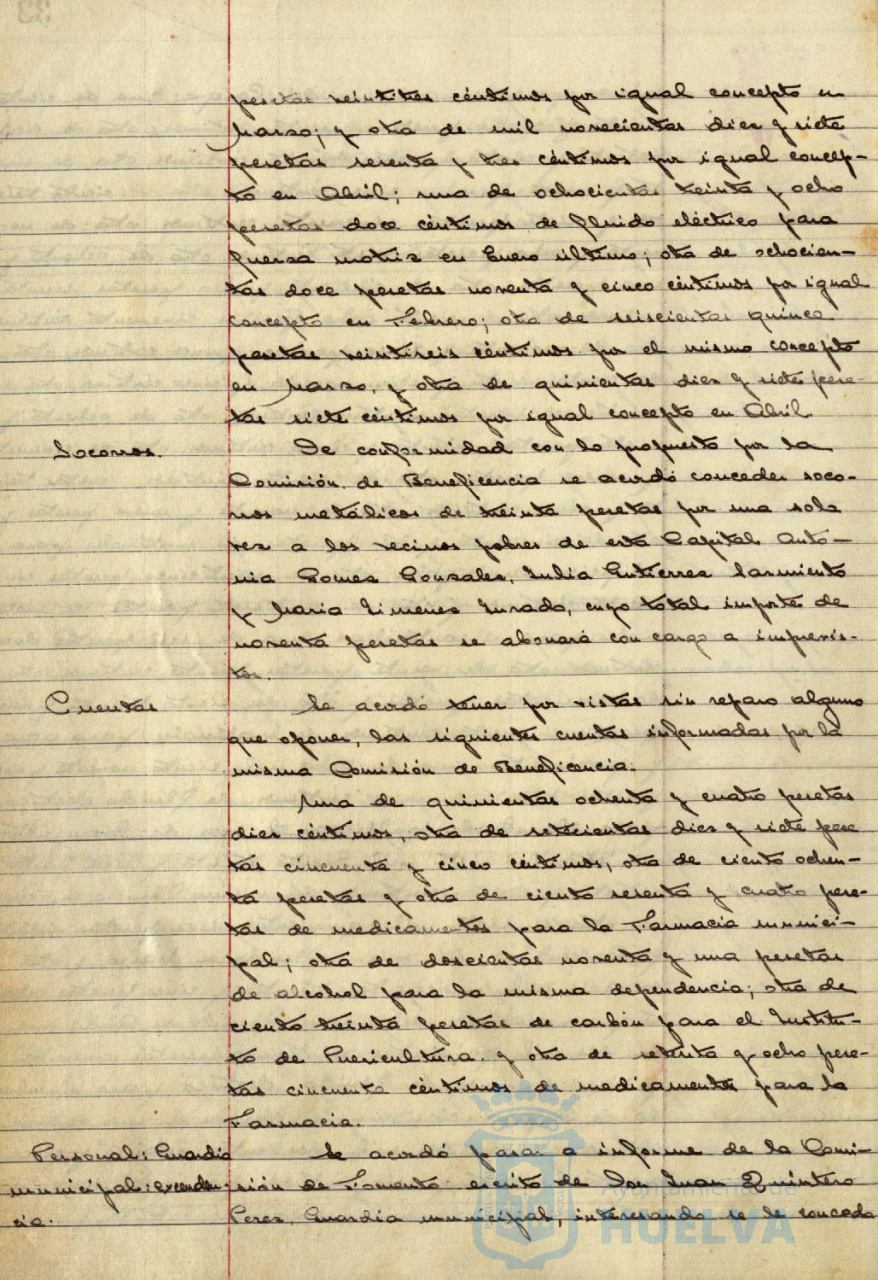 pesetas veintitres céntimos por igual concepto en
Marzo; y otra de mil novecientas diez y siete
pesetas sesenta y tres céntimos por igual concep-
to en Abril; una de ochocientas treinta y ocho
pesetas doce céntimos de fluido eléctrico para
fuerza motriz en Enero último; otra de ochocien-
tas doce pesetas noventa y cinco céntimos por igual
concepto en Febrero; otra de seiscientas quince
pesetas veintiseis céntimos por el mismo concepto
en Marzo, y otra de quinientas diez y siete pese-
tas siete céntimos por igual concepto en Abril.
Socorros.
De conformidad con lo propuesto por la
Comisión de Beneficencia se acordó conceder soco-
rros metálicos de treinta pesetas por una sola
vez a los vecinos pobres de esta Capital Antó-
nia Gomez Gonzales, Julia Gutierrez Sarmiento
y Maria Jimenez Jurado, cuyo total importe de
noventa pesetas se abonará con cargo a imprevis-
tos.
Cuentas
Se acordó tener por vistas sin reparo alguno
que oponer, las siguientes cuentas informadas por la
misma Comisión de Beneficencia:
Una de quinientas ochenta y cuatro pesetas
diez céntimos, otra de setecientas diez y siete pese
tas cincuenta y cinco céntimos, otra de ciento ochen-
ta pesetas y otra de ciento sesenta y cuatro pese-
tas de medicamentos para la Farmacia munici-
pal; otra de doscientas noventa y una pesetas
de alcohol para la misma dependencia; otra de
ciento treinta pesetas de carbón para el Institu-
to de Puericultura y otra de setenta y ocho pese-
tas cincuenta céntimos de medicamentos para la
Farmacia.
Personal: Guardia
municipal: exceden-
cia.
Se acordó pasar a informe de la Comi-
sión de Fomento escrito de Don Juan Quintero
Perez, Guardia municipal, interesando se le conceda
Ayuntamiento de
HUELVA